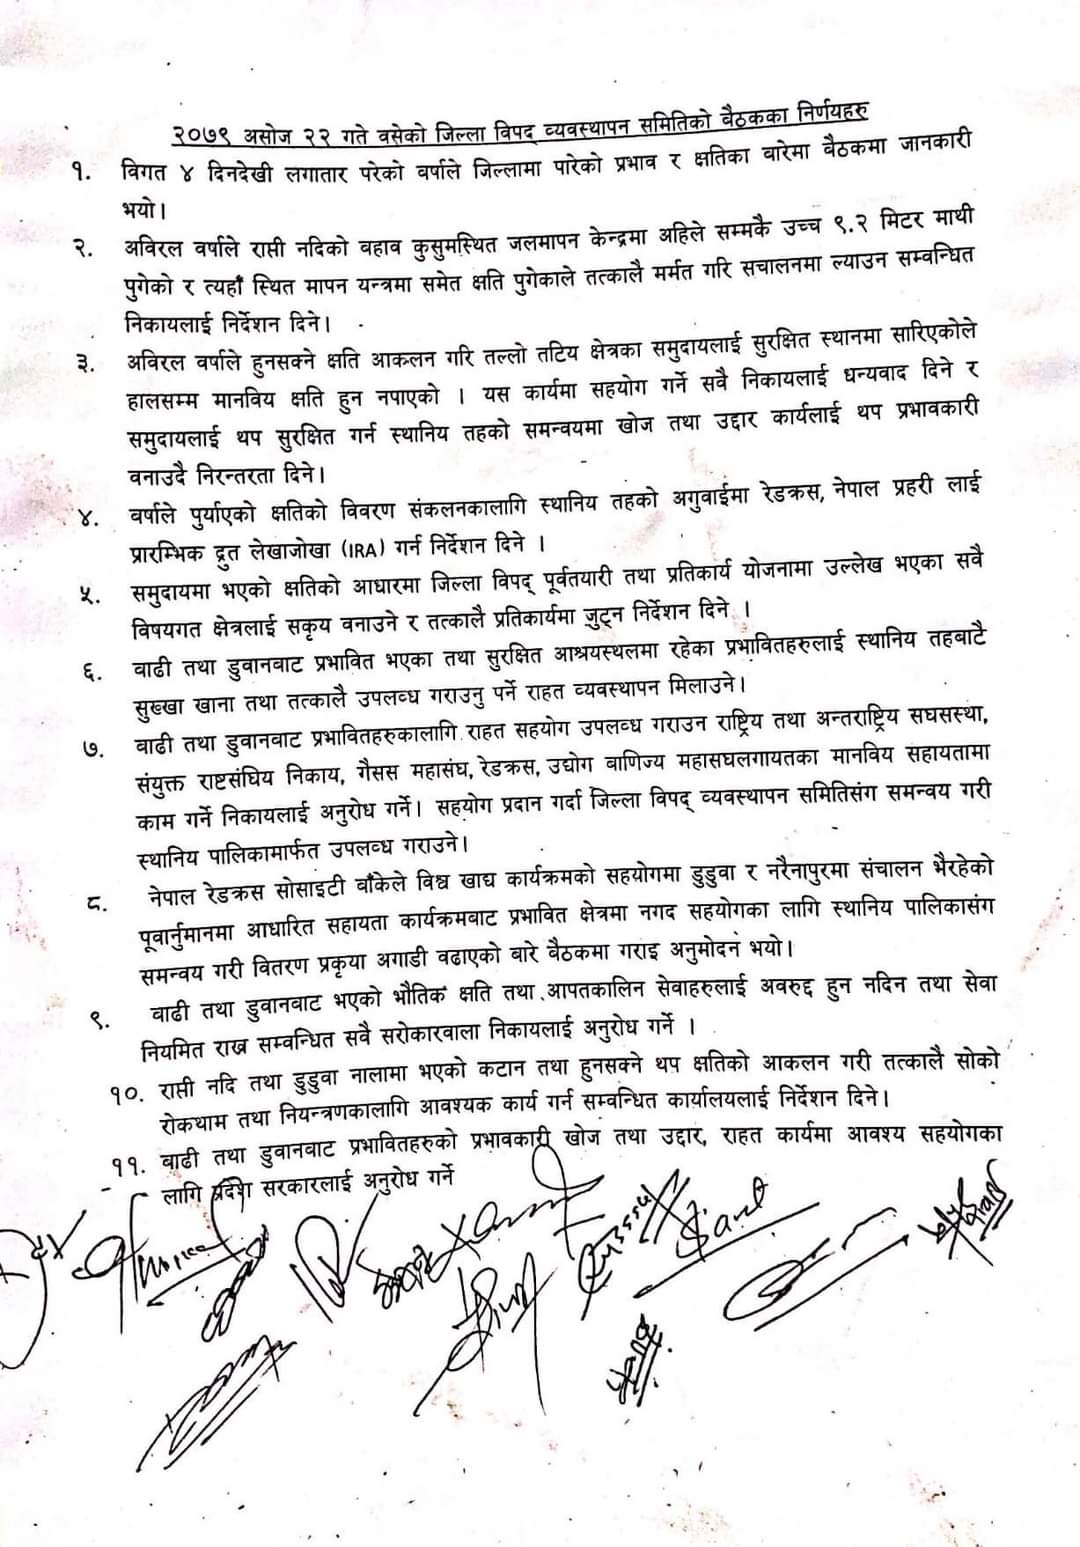 २०७९ असोज २२ गते वसेको जिल्ला विपद् व्यवस्थापन समितिको बैठकका निर्णयहरु
१. विगत ४ दिनदेखी लगातार परेको वर्षाले जिल्लामा पारेको प्रभाव र क्षतिका बारेमा बैठकमा जानकारी
भयो।
२. अविरल वर्षाले राप्ती नदिको वहाव कुसुमस्थित जलमापन केन्द्रमा अहिले सम्मकै उच्च ९.२ मिटर माथी
पुगेको र त्यहाँ स्थित मापन यन्त्रमा समेत क्षति पुगेकाले तत्कालै मर्मत गरि सचालनमा ल्याउन सम्वन्धित
निकायलाई निर्देशन दिने।
३. अविरल वर्षाले हुनसक्ने क्षति आकलन गरि तल्लो तटिय क्षेत्रका समुदायलाई सुरक्षित स्थानमा सारिएकोले
हालसम्म मानविय क्षति हुन नपाएको । यस कार्यमा सहयोग गर्ने सवै निकायलाई धन्यवाद दिने र
समुदायलाई थप सुरक्षित गर्न स्थानिय तहको समन्वयमा खोज तथा उद्दार कार्यलाई थप प्रभावकारी
वनाउदै निरन्तरता दिने।
४. वर्षाले पुर्याएको क्षतिको विवरण संकलनकालागि स्थानिय तहको अगुवाईमा रेडक्रस, नेपाल प्रहरी लाई
प्रारम्भिक द्रुत लेखाजोखा (IRA) गर्न निर्देशन दिने ।
५. समुदायमा भएको क्षतिको आधारमा जिल्ला विपद् पूर्वतयारी तथा प्रतिकार्य योजनामा उल्लेख भएका सवै
विषयगत क्षेत्रलाई सकृय वनाउने र तत्कालै प्रतिकार्यमा जुट्न निर्देशन दिने ।
६. वाढी तथा डुवानबाट प्रभावित भएका तथा सुरक्षित आश्रयस्थलमा रहेका प्रभावितहरुलाई स्थानिय तहबाटै
सुख्खा खाना तथा तत्कालै उपलव्ध गराउनु पर्ने राहत व्यवस्थापन मिलाउने।
७. वाढी तथा डुवानबाट प्रभावितहरुकालागि राहत सहयोग उपलव्ध गराउन राष्ट्रिय तथा अन्तराष्ट्रिय सघसस्था,
संयुक्त राष्टसंघिय निकाय, गैसस महासंघ, रेडक्रस, उद्योग वाणिज्य महासघलगायतका मानविय सहायतामा
काम गर्ने निकायलाई अनुरोध गर्ने। सहयोग प्रदान गर्दा जिल्ला विपद् व्यवस्थापन समितिसंग समन्वय गरी
स्थानिय पालिकामार्फत उपलव्ध गराउने।
८. नेपाल रेडक्रस सोसाइटी बाँकेले विश्व खाद्य कार्यक्रमको सहयोगमा डुडुवा र नरैनापुरमा संचालन भैरहेको
पूवार्नुमानमा आधारित सहायता कार्यक्रमबाट प्रभावित क्षेत्रमा नगद सहयोगका लागि स्थानिय पालिकासंग
समन्वय गरी वितरण प्रकृया अगाडी वढाएको बारे बैठकमा गराइ अनुमोदन भयो।
९. वाढी तथा डुवानबाट भएको भौतिक क्षति तथा आपतकालिन सेवाहरुलाई अवरुद्द हुन नदिन तथा सेवा
नियमित राख्न सम्वन्धित सवै सरोकारवाला निकायलाई अनुरोध गर्ने ।
१०. राप्ती नदि तथा डुडुवा नालामा भएको कटान तथा हुनसक्ने थप क्षतिको आकलन गरी तत्कालै सोको
रोकथाम तथा नियन्त्रणकालागि आवश्यक कार्य गर्न सम्वन्धित कार्यालयलाई निर्देशन दिने।
११. वाढी तथा डुवानबाट प्रभावितहरुको प्रभावकारी खोज तथा उद्दार, राहत कार्यमा आवश्य सहयोगका
लागि प्रदेश सरकारलाई अनुरोध गर्ने